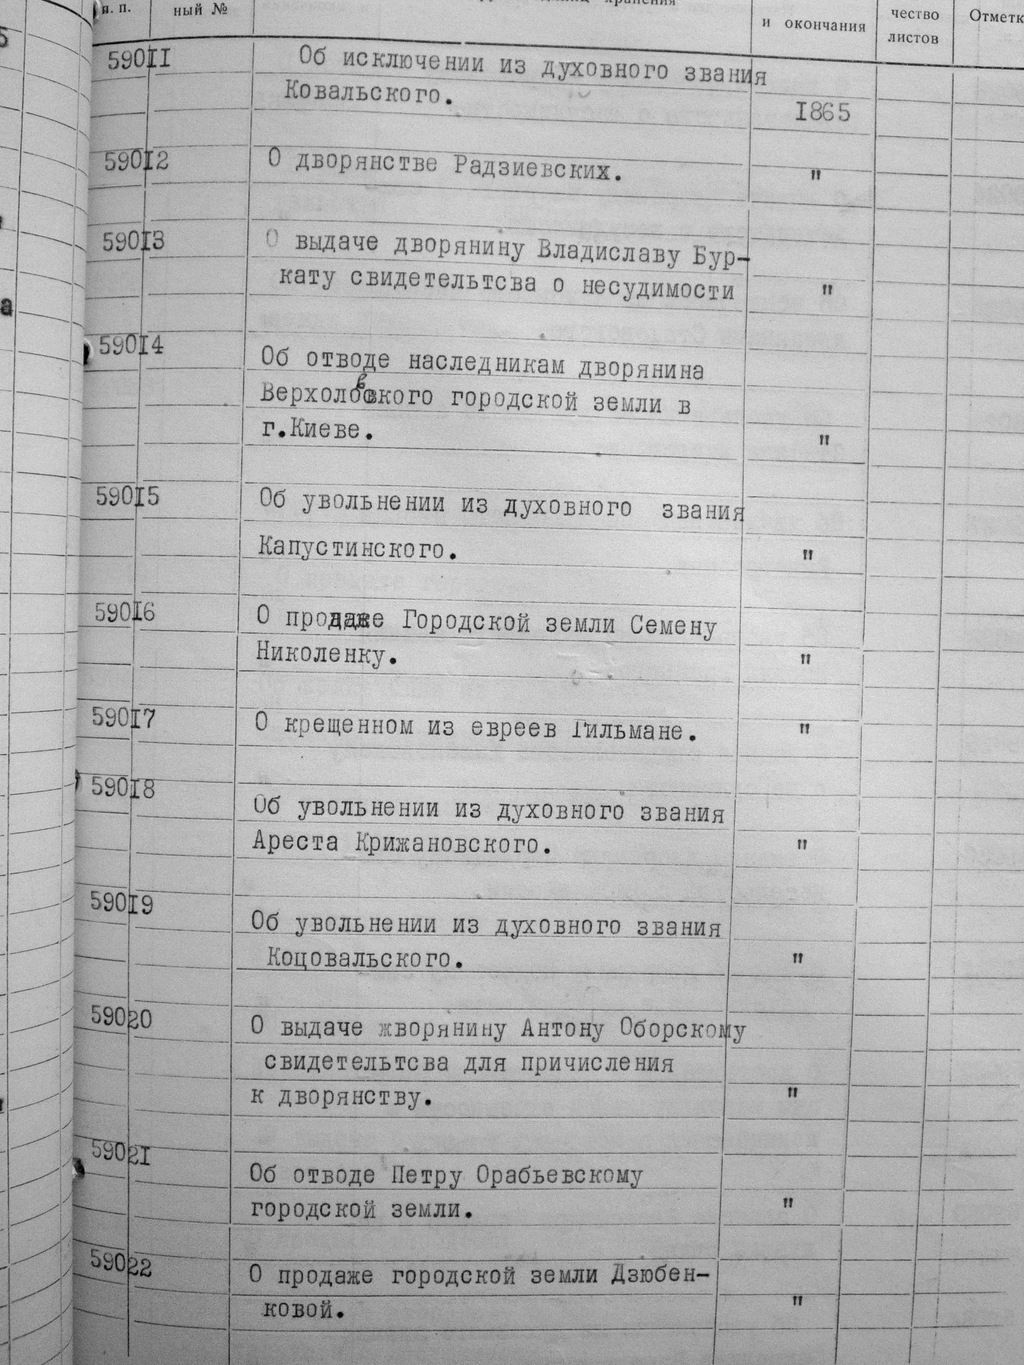 п. п.
ный №
хранения
и окончания
чество
листов
Отметк
59011 Об исключении из духовного звания
Ковальского.
1865
59012 О дворянстве Радзиевских. "
59013 О выдаче дворянину Владиславу Бур-
кату свидетельтсва о несудимости "
59014
Об отводе наследникам дворянина
Верхоловского городской земли в
г.Киеве. "
59015 Об увольнении из духовного звания
Капустинского. "
59016 О продаже Городской земли Семену
Николенку. "
59017 О крещенном из евреев Гильмане. "
59018
Об увольнении из духовного звания
Ареста Крижановского. "
59019
Об увольнении из духовного звания
Коцовальского. "
59020 О выдаче жворянину Антону Оборскому
свидетельтсва для причисления
к дворянству. "
59021
Об отводе Петру Орабьевскому
городской земли. "
59022 О продаже городской земли Дзюбен-
ковой. "